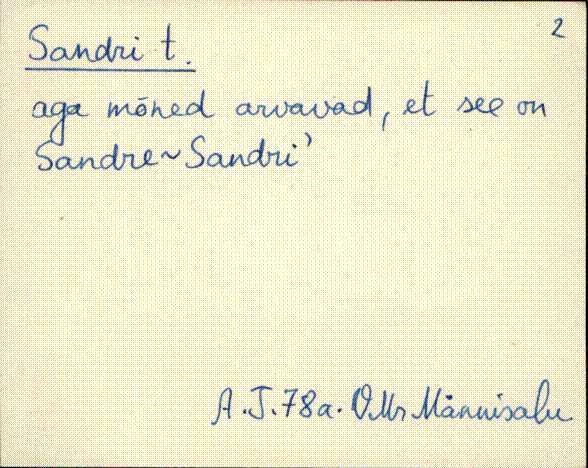 2
Sandri t.
aga mõned arvavad, et see on
Sandre~Sandri'
A.J.78a. Männisalu